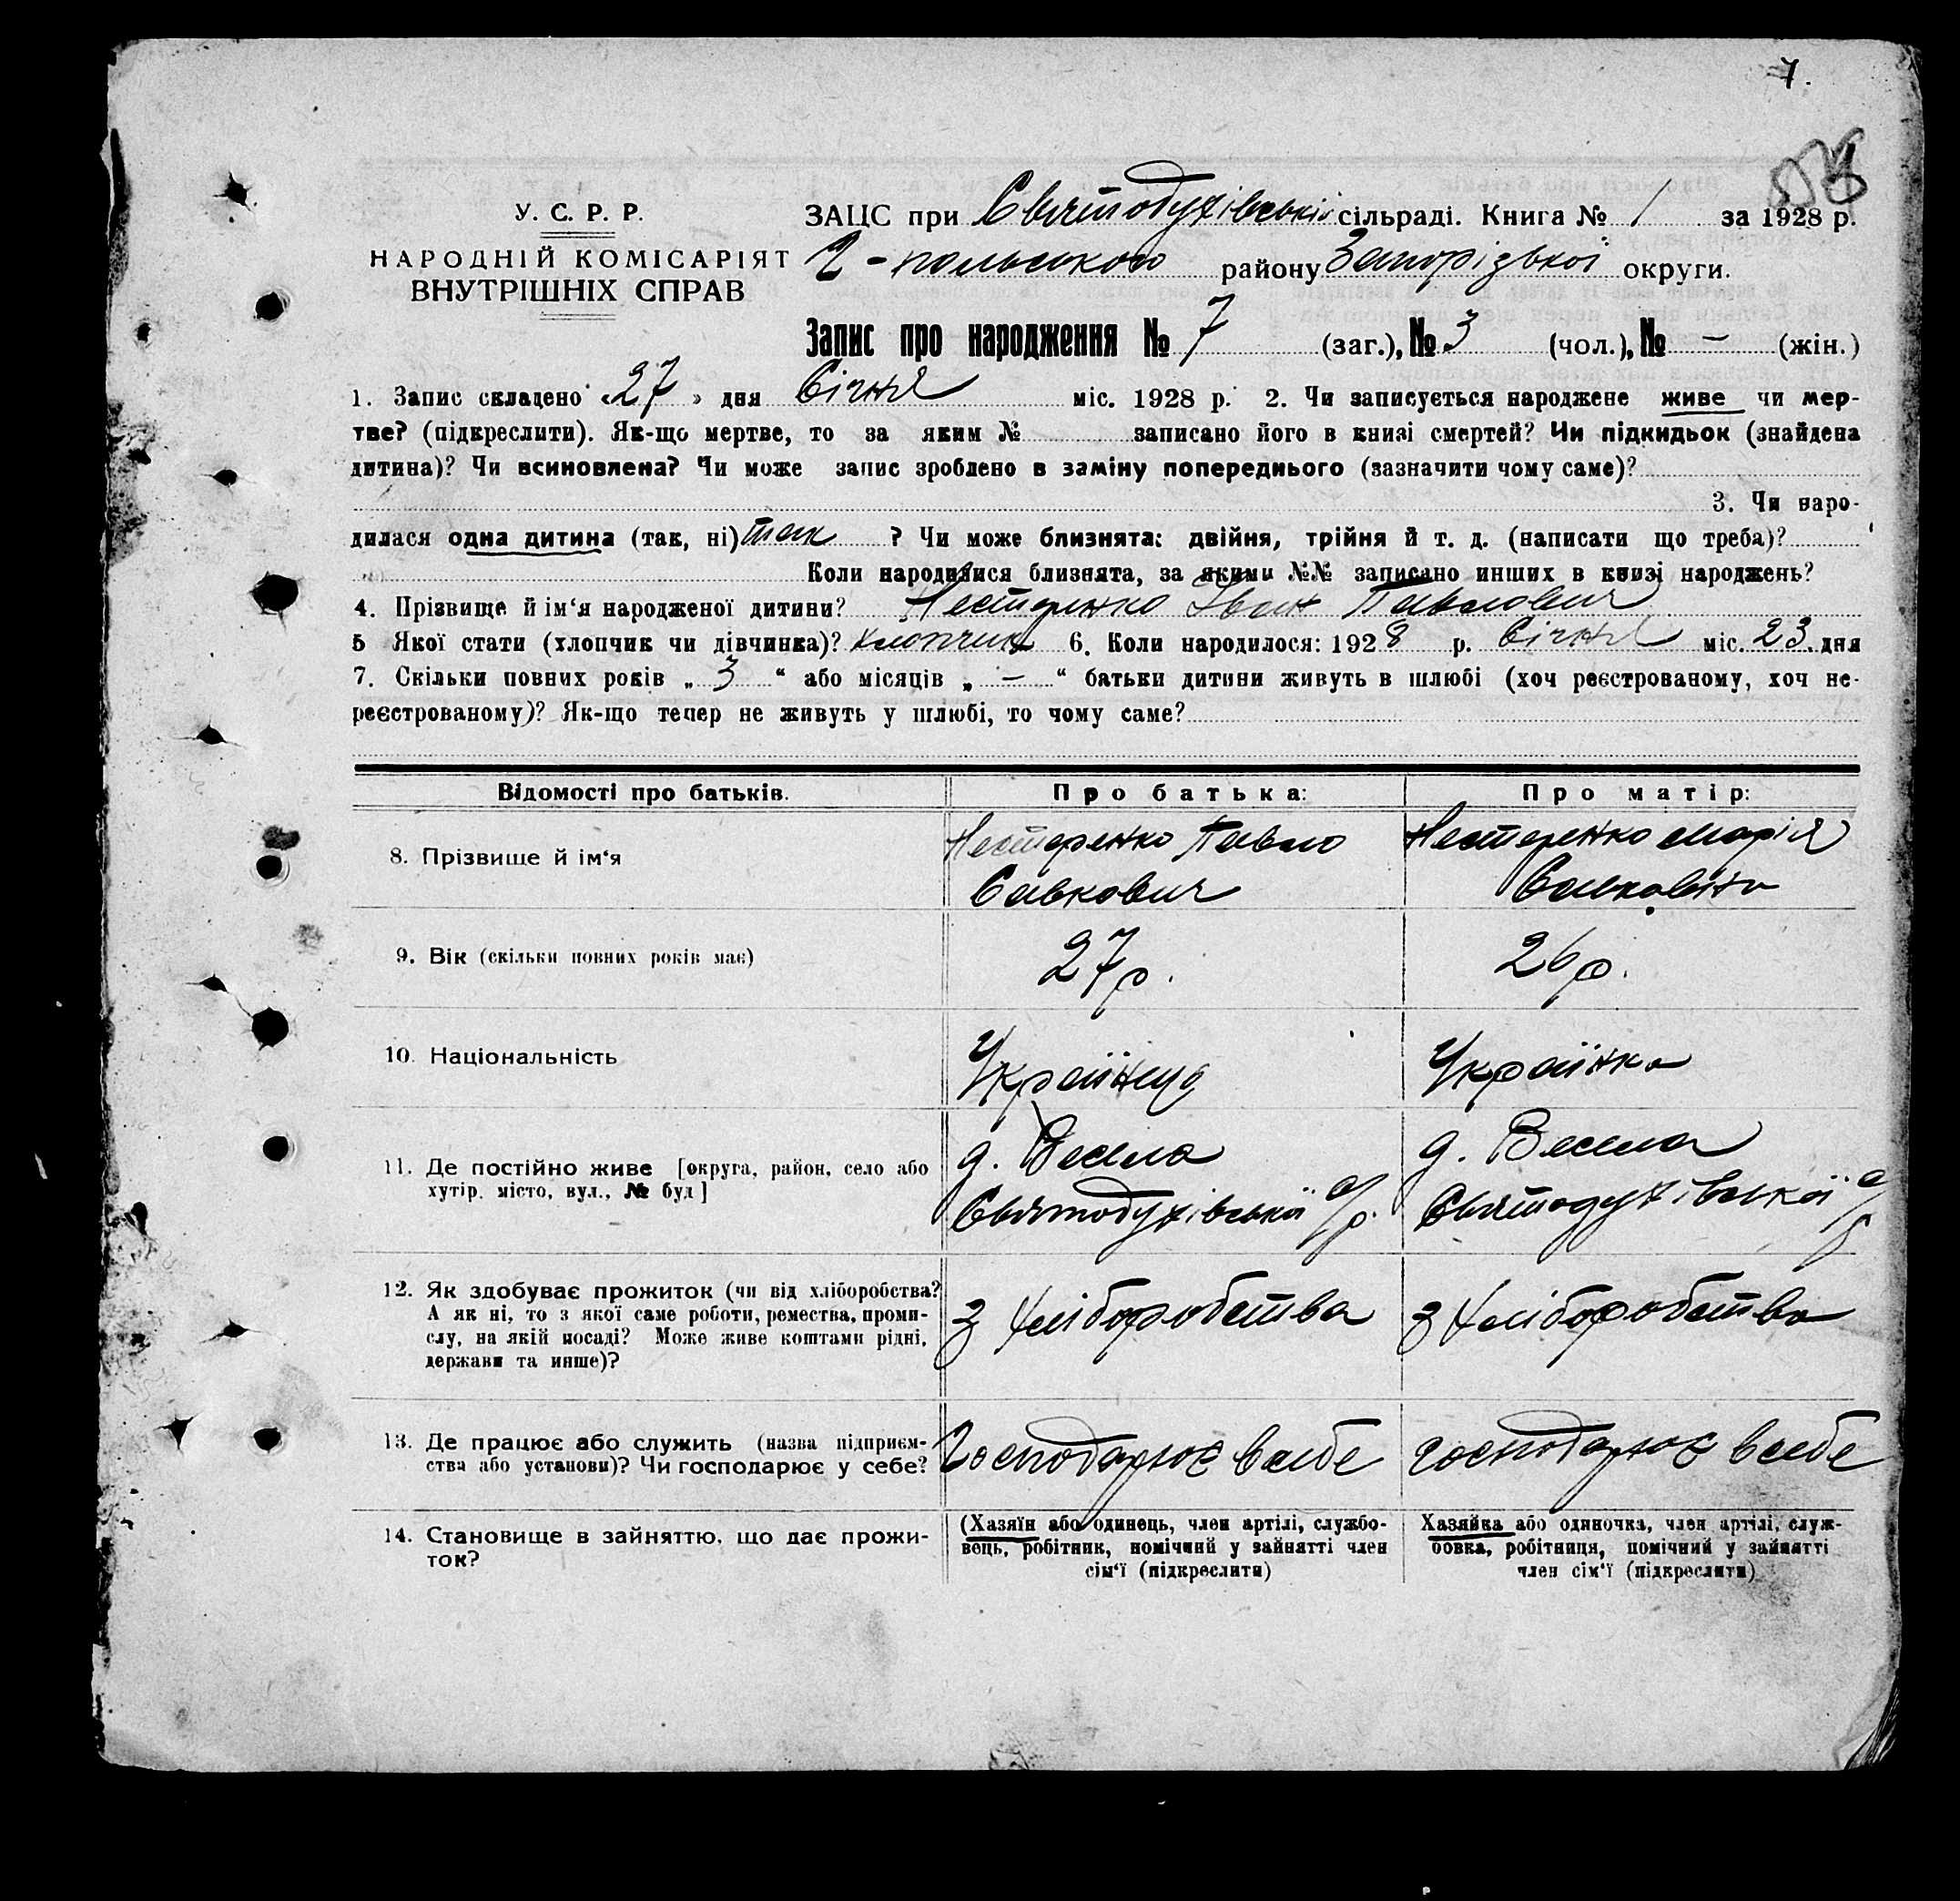 7.
У. С. Р. Р.
НАРОДНІЙ КОМІСАРІЯТ
ВНУТРІШНІХ СПРАВ
ЗАЦС при Святодухівській сільраді. Книга № 1 за 1928 р.
Г-польського району Запорізької округи.
Запис про народження № 7 (заг.), № 3 (чол.), № — (жін.)
1. Запис складено „27" дня Січня міс. 1928 р. 2. Чи записується народжене живе чи мер-
тве? (підкреслити). Як-що мертве, то за яким № записано його в книзі смертей? Чи підкидьок (знайдена
дитина)? Чи всиновлена? Чи може запис зроблено в заміну попереднього (зазначити чому саме)?
3. Чи наро-
дилася одна дитина (так, ні) так ? Чи може близнята: двійня, трійня й т. д. (написати що треба)?
Коли народилися близнята, за якими №№ записано инших в книзі народжень?
4. Прізвище й ім‘я народженої дитини? Нестеренко Іван Павлович
5 Якої стати (хлопчик чи дівчинка)? хлопчик 6. Коли народилося: 1928 р. Січня міс. 23 дня
7. Скільки повних років „ 3 “ або місяців „ — “ батьки дитини живуть в шлюбі (хоч реєстрованому, хоч не-
реєстрованому)? Як-що тепер не живуть у шлюбі, то чому саме?
Відомості про батьків. Про батька: Про матір:
8. Прізвище й ім‘я Нестеренко Павло Нестеренко Марія
Савкович Савковна
9. Вік (скільки повних років має) 27 р. 26 р.
10. Національність Українец Українка
11. Де постійно живе [округа, район, село або д. Весела д. Весела
хутір, місто, вул., № буд] Святодухівської с/р. Святодухівської с/р
12. Як здобуває прожиток (чи від хліборобства? з хліборобства з хліборобства
А як ні, то з якої саме роботи, ремества, проми-
слу, на якій посаді? Може живе коштами рідні,
держави та инше)?
13. Де працює або служить (назва підприєм- Господарює в себе господарює в себе
ства або установи)? Чи господарює у себе?
14. Становище в зайняттю, що дає прожи- (Хазяїн або одинець, член артілі, службо- Хазяйка або одиночка, член артілі, служ-
ток? вець, робітник, помічний у зайнятті член бовка, робітниця, помічний у зайнятті
сім‘ї (підкреслити) член сім‘ї (підкреслити)